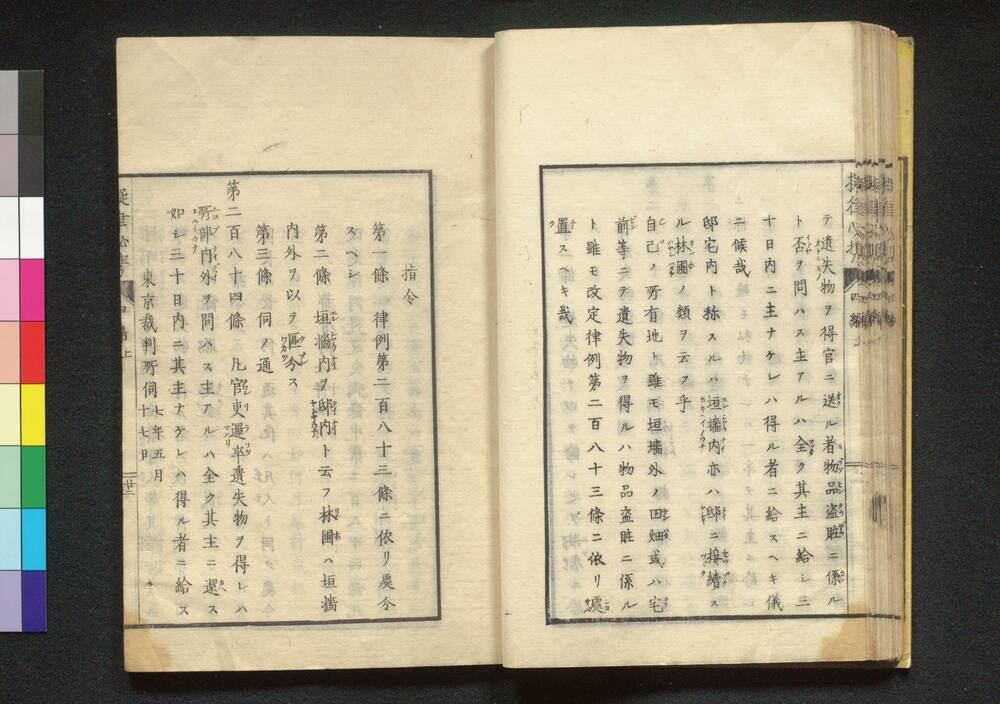 テ遺失物ヲ得官ニ送ル者物品盜賍ニ係ル
ト否ヲ問ハス主アルハ全ク其主ニ給シ三
十日内ニ主ナケレハ得ル者ニ給スヘキ儀
ニ候哉
邸宅内ト称スルハ垣墻内亦ハ邸ニ接續ス
ル林圃ノ類ヲ云フ乎
自己ノ所有地ト雖モ垣墻外ノ田畑或ハ宅
前等ニテ遺失物ヲ得ルハ物品盜賍ニ係ル
ト雖モ改定律例第二百八十三條ニ依リ處
置スヘキ哉
指令
第一條 律例第二百八十三條ニ依リ處分
スヘシ
第二條 垣墻内ヲ邸内ト云フ林圃ハ垣墻
内外ヲ以テ區分ス
第三條 伺ノ通
第二百八十四條 凡官吏邏卒遺失物ヲ得レハ
所部内外ヲ問ハス主アルハ全ク其主ニ還ス
如シ三十日内ニ其主ナケレハ得ル者ニ給ス
東京裁判所伺 七年五月
十七日
四編上
廿三